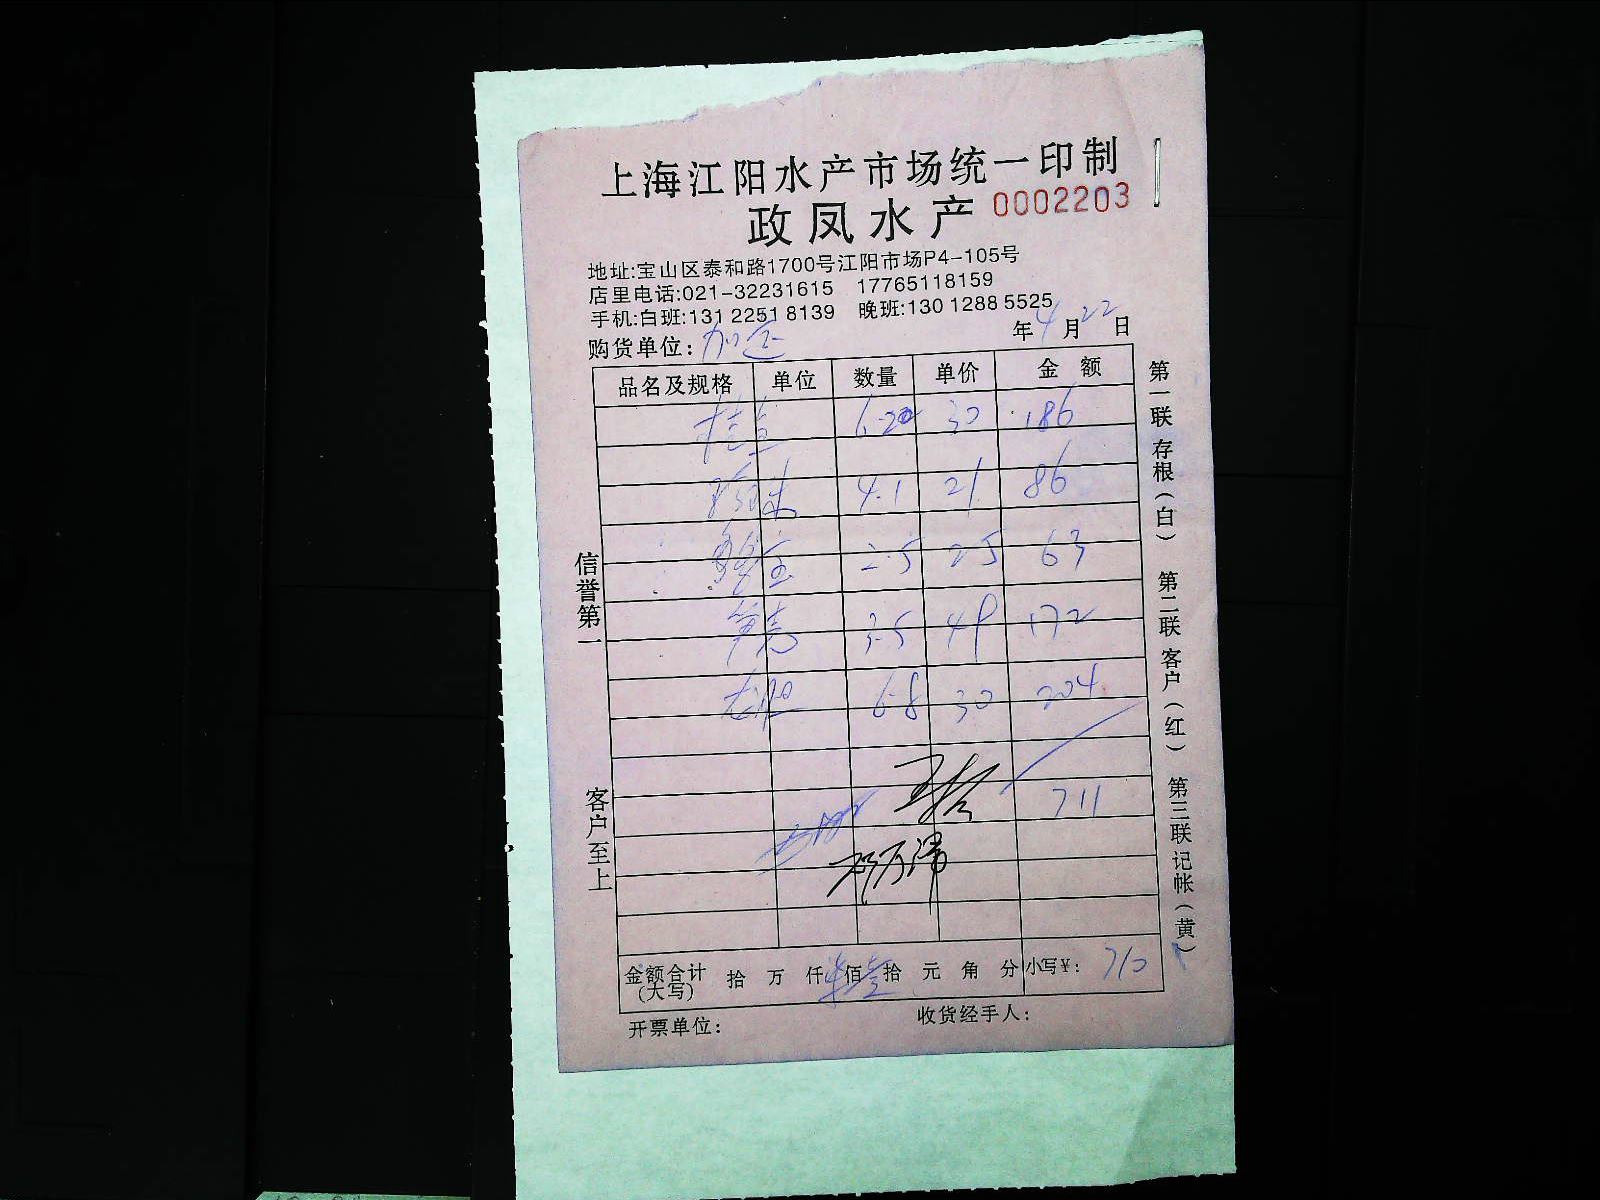 上海江阳水产市场统一印制
政凤水产 0002203
地址:宝山区泰和路1700号江阳市场P4-105号
店里电话:021-32231615 17765118159
手机:白班:131 2251 8139 晚班:130 1288 5525
年 4 月 22 日
购货单位:
品名及规格 单位 数量 单价 金额
6.20 30 186
4.1 21 86
2.5 25 63
3.5 49 172
6.8 30 204
711
金额合计(大写) 拾 万 仟 佰 拾 元 角 分 小写¥: 710
开票单位: 收货经手人:
信誉第一
客户至上
第一联存根(白) 第二联客户(红) 第三联记帐(黄)